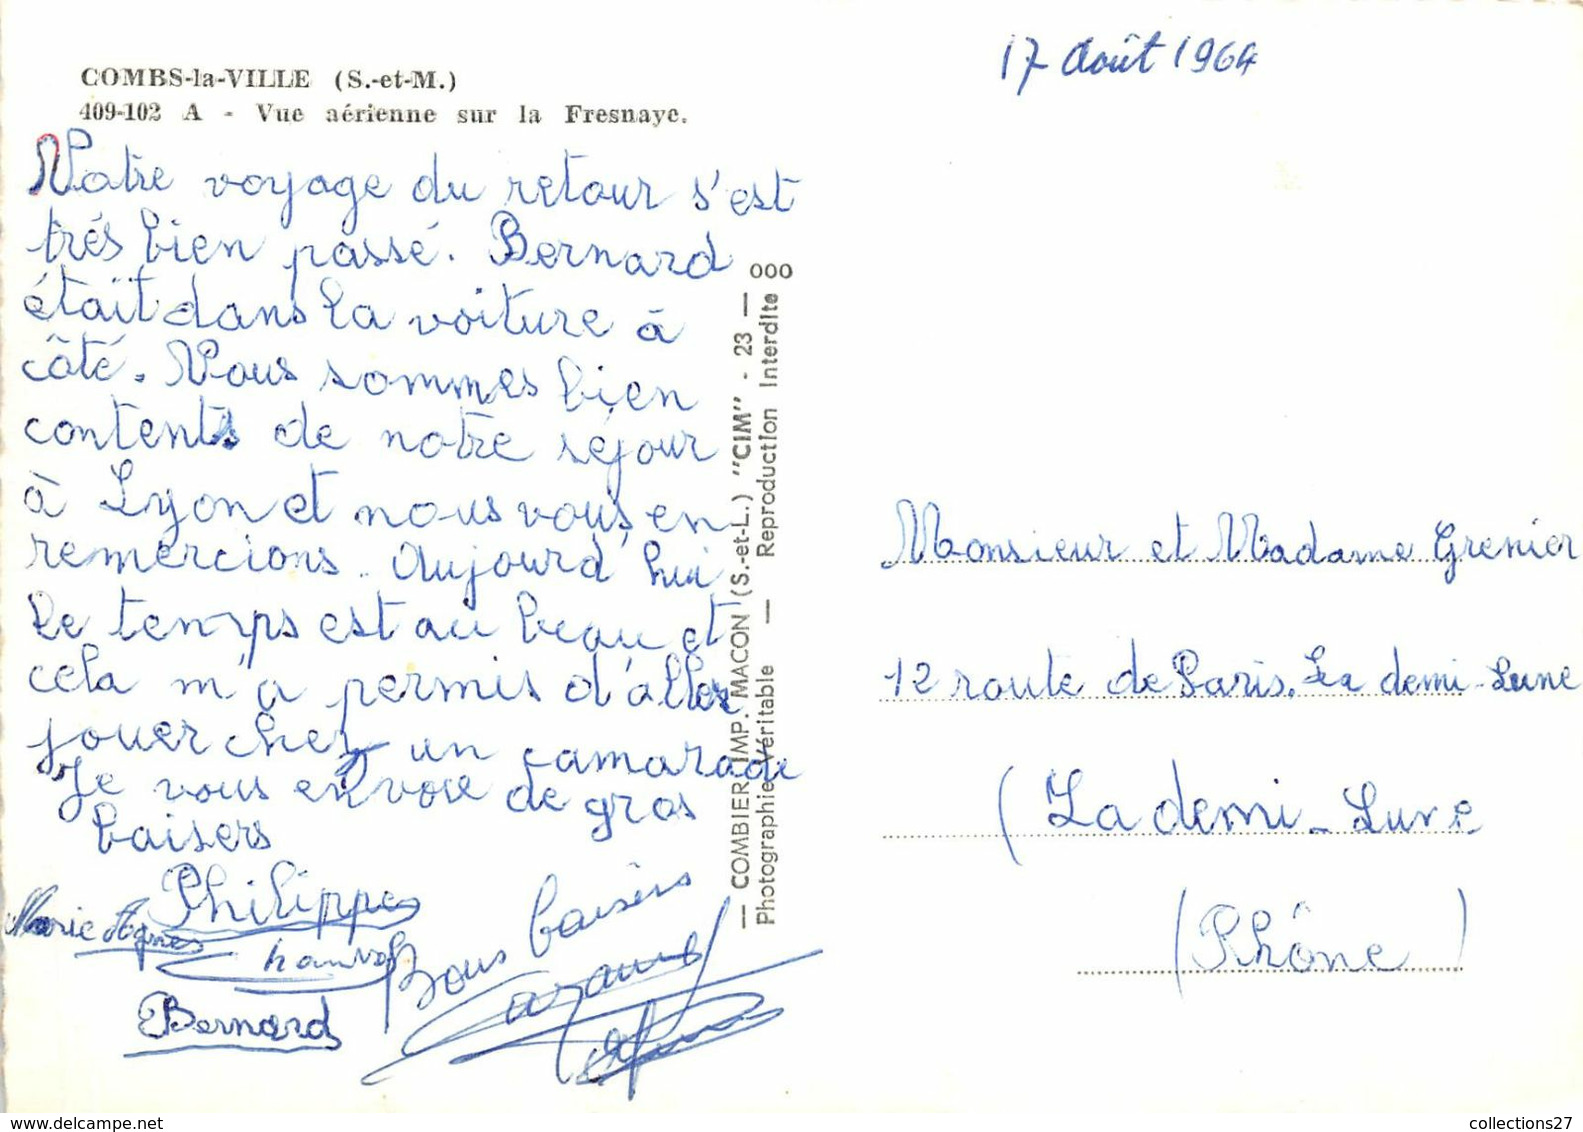 COMBS-la-VILLE (S.-et-M.)
409-102 A - Vue aérienne sur la Fresnaye.
17 Août 1964
Notre voyage du retour s'est
très bien passé. Bernard
étaït dans la voiture à
côté. Nous sommes bien
contents de notre séjour
à Lyon et nous vous en
remercions. Aujourd'hui
le temps est au beau et
cela m'a permis d'aller
jouer chez un camarade
Je vous envoie de gros
baisers
Philippe
Marie Agnes
Bons baisers
Bernard
— COMBIER IMP. MACON (S.-et-L.) "CIM" - 23 — 000
Photographie Véritable — Reproduction Interdite
Monsieur et Madame Grenier
12 route de Paris. La demi-Lune
(La demi-Lune
(Rhône)
collections27